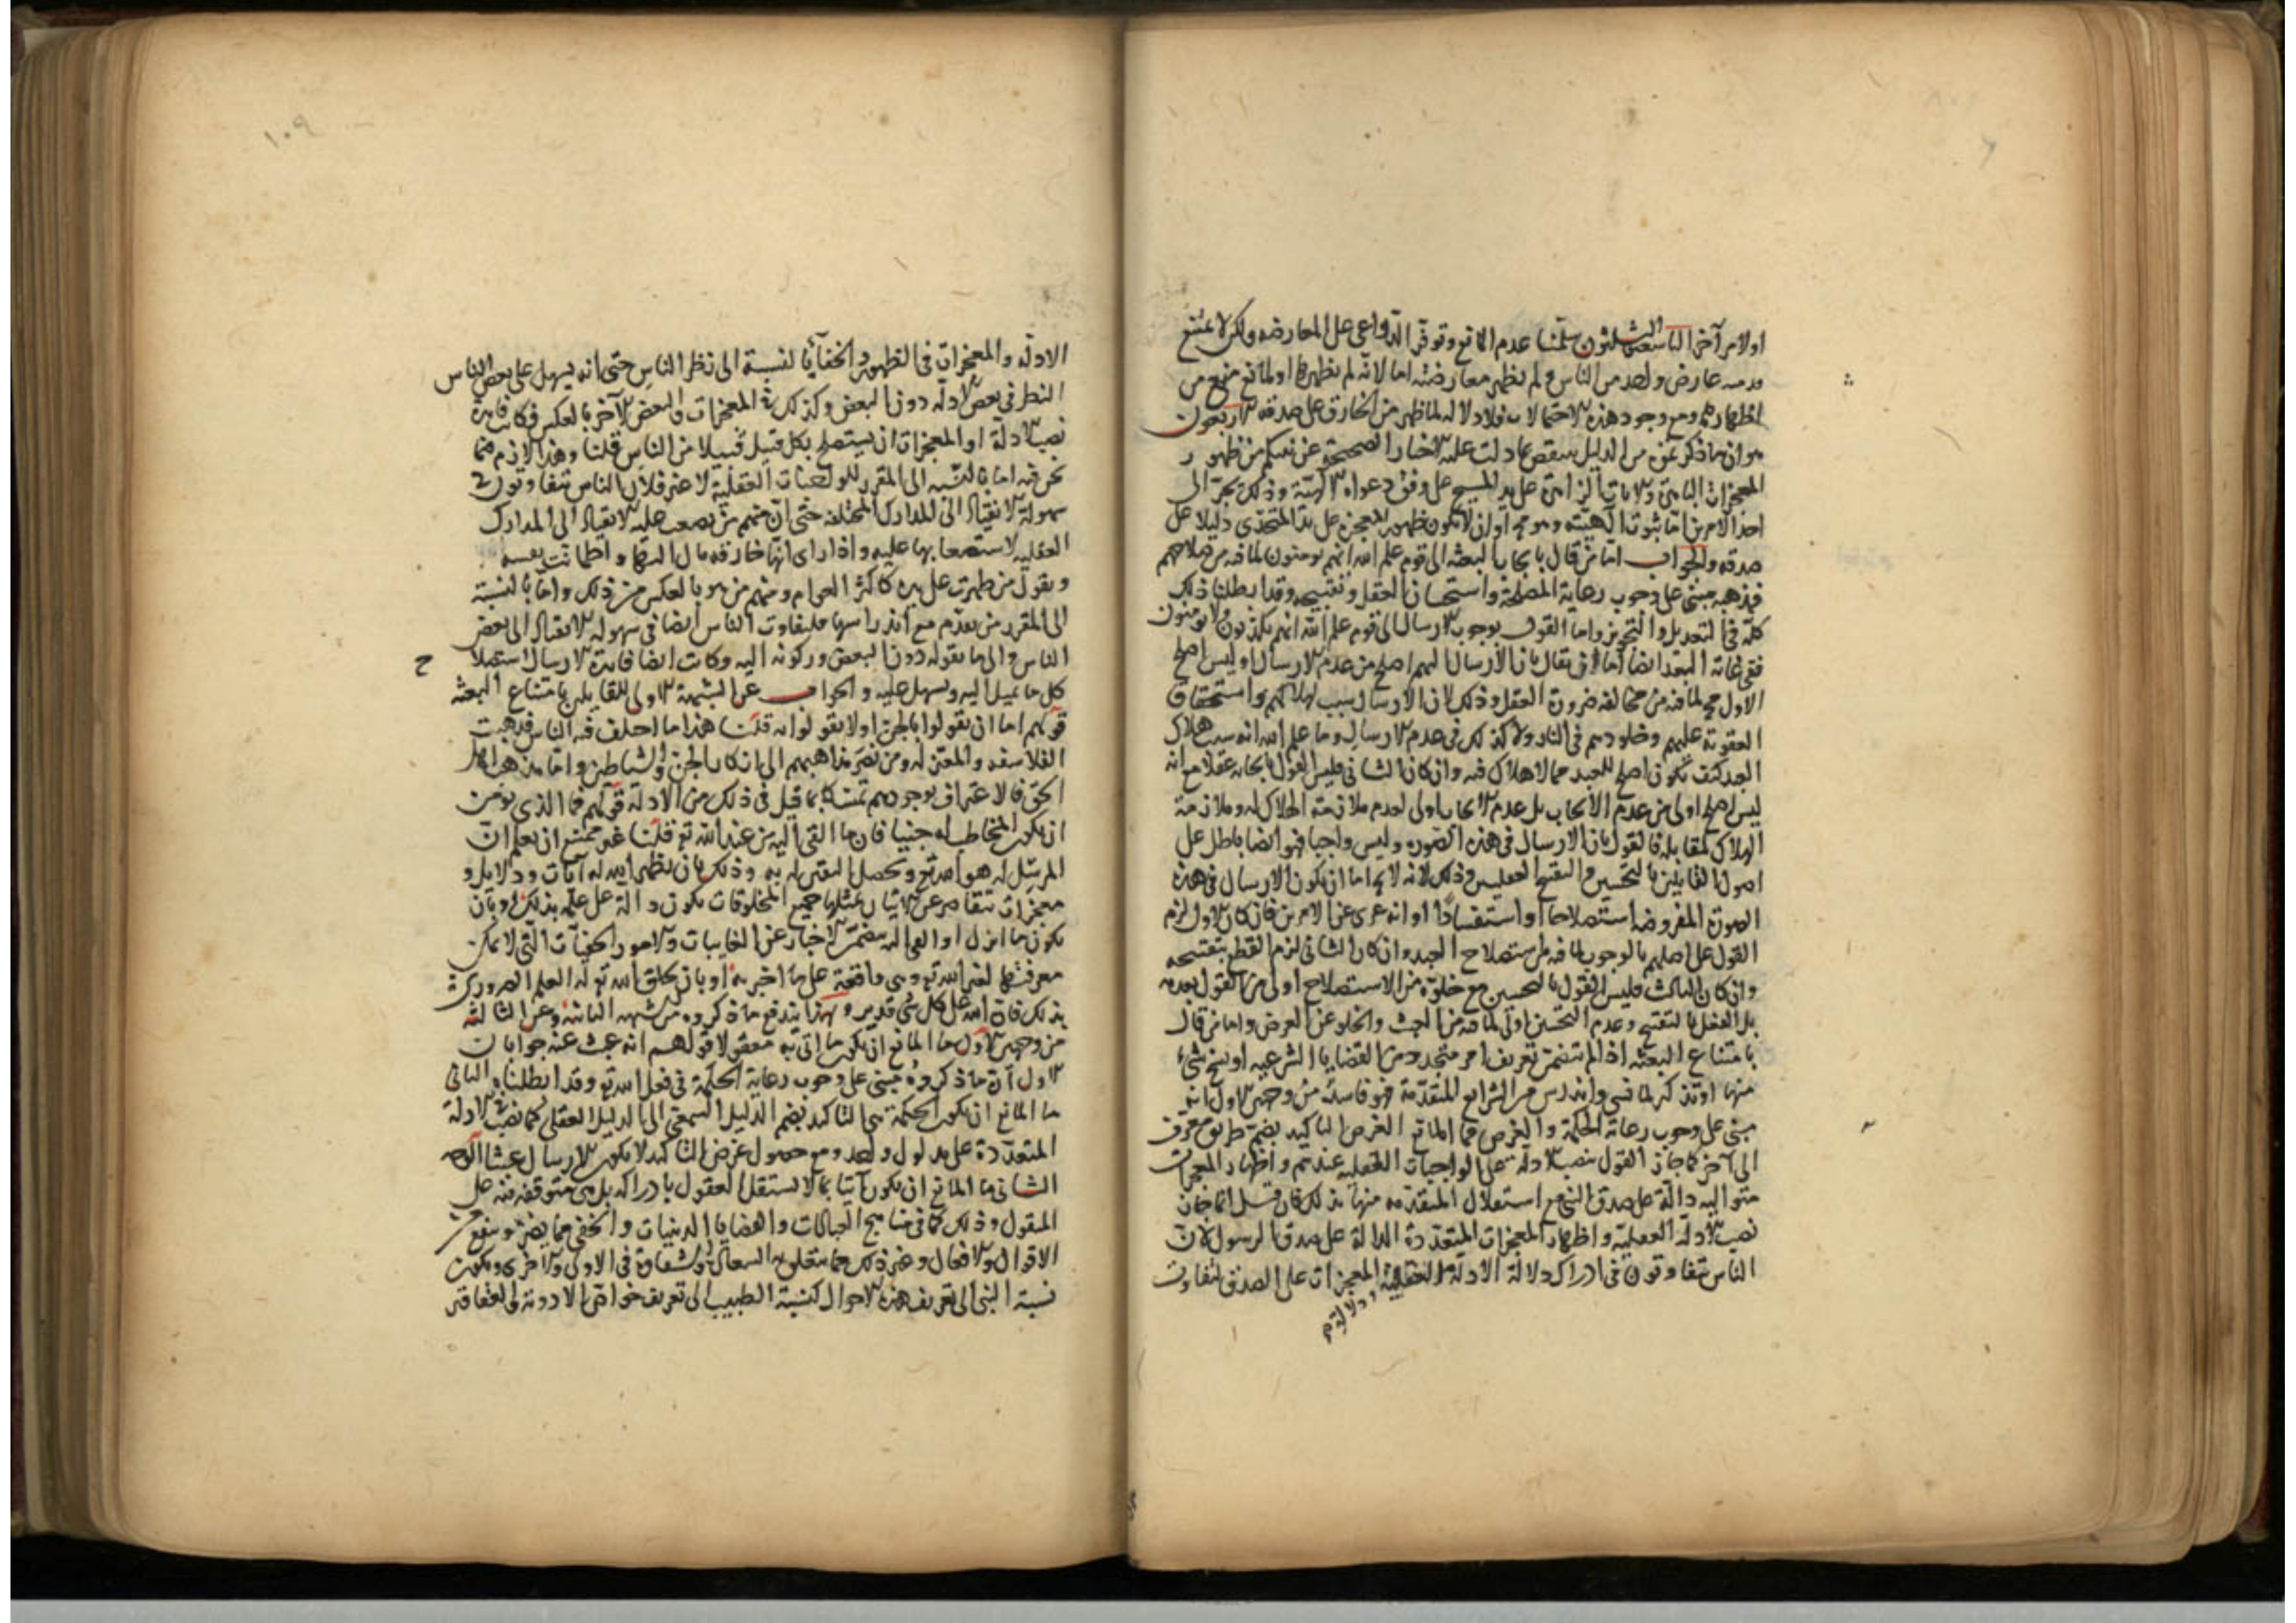 اولامر آخر التاسع والثلثون سلمنا عدم المانع وتوفر الدواعى على المعارضه ولكن لا يمتنع
عارض واحد من الناس ولم يظهر معارضته اما لانه لم يظهرها او لمانع منع من
اظهارها ومع وجود هذه الاحتمالات فلا دلاله لما ظهر من الخارق على صدقه الاربعون
هو ان ما ذكرتموه من الدليل ينتقض بما دلت عليه الاخبار الصحيحة عن نبيكم من ظهور
المعجزات والايات على يد المسيح على وفق دعواه الالهية وذلك يجر الى
احد الامرين اما ثبوت الهيته وهو مح او ان لا يكون ظهور المعجزه على يد المتحدى دليلا على
صدقه والجواب اما من قال بايجاب البعثه الى قوم علم الله انهم يومنون لما فيه من صلاحهم
فمذهبه مبنى على وجوب رعاية المصلحة واستحسان العقل وتقبيحه وقد ابطلنا ذلك
كله فى التعديل والتجويز واما القول بوجوب الارسال الى قوم علم الله انهم يكذبون ولا يومنون
ففى غاية البعد ايضا اما ان يقال بان الارسال اليهم اصلح من عدم الارسال او ليس اصلح
الاول مح لما فيه من مخالفه ضرورة العقل وذلك لان الارسال سبب لهلاكهم واستحقاق
العقوبة عليهم وخلودهم فى النار ولا كذلك فى عدم الارسال وما علم الله انه سبب هلاك
العبد كيف يكون اصلح للعبد مما لا هلاك فيه وان كان الثانى فليس القول بايجابه عقلا مع انه
ليس اصلح اولى من عدم الايجاب بل عدم الايجاب اولى لعدم ملازمة الهلاك له وملازمة
الهلاك لمقابله فالقول بان الارسال فى هذه الصوره وليس واجبا فهو ايضا باطل على
اصول القايلين بالتحسين والتقبيح العقليين وذلك لانه لا يخ اما ان يكون الارسال فى هذه
الصورة المفروضه استصلاحا او استفسادا او انه عرى عن الامرين فان كان الاول لزم
القول على اصلهم بالوجوب لما فيه من استصلاح العبد وان كان الثانى لزم القطع بتقبيحه
وان كان الثالث فليس القول بالتحسين مع خلوه من الاستصلاح اولى من القول بعدمه
بل العقل بالتقبيح وعدم التحسين اولى لما فيه من العبث والخلو عن الغرض واما من قال
بامتناع البعثه اذا لم تتضمن تعريف امر متجدد من القضايا الشرعيه او نسخ شئ
منها او تذكير لما نسى واندرس من الشرائع المتقدمة فهو فاسد من وجهين الاول انه
مبنى على وجوب رعاية الحكمة والغرض فما المانع الغرض التاكيد بضم طريق معرف
الى آخر كما جاز القول بنصب الادلة على الواجبات العقليه عندهم واظهار المعجزات
متواليه دالة على صدق النبى مع استقلال المتقدمه منها بذلك فان قيل انما جاز
نصب الادلة العقلية واظهار المعجزات المتعددة الدالة على صدق الرسول لان
الناس متفاوتون فى ادراك دلالة الادلة العقلية ودلالة المعجزات على الصدق لتفاوت
١٠٩
الادله والمعجزات فى الظهور والخفاء بالنسبة الى نظر الناس حتى انه يسهل على بعض الناس
النظر فى بعض الادله دون البعض وكذلك فى المعجزات والبعض الآخر بالعكس فكانت فايدة
نصب الادلة او المعجزات ان يستصلح بكل قبيل قبيلا من الناس قلنا وهذا لازم فيما
نحن فيه اما بالنسبه الى المقرر للواجبات العقلية لا غير فلان الناس متفاوتون فى
سهولة الانقياد الى المدارك المختلفه حتى ان منهم من يصعب عليه الانقياد الى المدارك
العقليه لاستصعابها عليه واذا راى انها خارقه مال اليها واطمانت نفسه
وبقول من ظهرت على يده كاكثر العوام ومنهم من هو بالعكس من ذلك واما بالنسبة
الى المقرر من تقدم مع اندراسها فلتفاوت الناس ايضا فى سهولة الانقياد الى بعض
الناس والى ما يقوله دون البعض وركونه اليه وكانت ايضا فايدة الارسال استصلاح
كل ما يميل اليه ويسهل عليه والجواب عن الشبهة الاولى للقايلين بامتناع البعثه
قولهم اما ان يقولوا بالجن اولا يقولوا به قلنا هذا ما اختلف فيه الناس فذهبت
الفلاسفه والمعتزله ومن نصر مذاهبهم الى انكار الجن والشياطين واما مذهب اهل
الحق فالاعتراف بوجودهم تمسكا بما قيل فى ذلك من الادلة قولهم فما الذى يومن
ان يكون المخاطب له جنيا فان ما القى اليه من عند الله تع قلنا غير ممتنع ان يعلم ان
المرسل له هو الله تع ويحصل اليقين له به وذلك بان يظهر الله له آيات ودلايل و
معجزات تتقاصر عن الاتيان بمثلها جميع المخلوقات يكون دالة على علمه بذلك وبان
يكون ما انزل او القى اليه يتضمن الاخبار عن الغايبات والامور الخفيات التى لا يمكن
معرفتها لغير الله تع وهى واقعة على ما اخبر به او بان يخلق الله تع له العلم الضرورى
بذلك فان الله على كل شى قدير وبهذا يندفع ما ذكروه من الشبهه الثانية وعن الثالثه
من وجهين الاول ما المانع ان يكون ما اتى به معقولا قولهم انه عبث عنه جوابان
الاول ان ما ذكروه مبنى على وجوب رعاية الحكمة فى فعل الله تع وقد ابطلناه الثانى
ما المانع ان يكون الحكمة هى التاكيد بضم الدليل السمعى الى الدليل العقلى كما نصب الادلة
المتعددة على مدلول واحد وهو حصول غرض التاكيد لا يكون الارسال عبثا الوجه
الثانى ما المانع ان يكون آتيا بما لا تستقل العقول بادراكه بل هى متوقفه فيه على
المنقول وذلك كما فى مناهج العبادات والقضايا الدينيات والخفى مما يضر وينفع من
الاقوال والافعال وغير ذلك مما يتعلق به السعادة والشقاوة فى الاولى والآخرى ويكون
نسبة النبى الى تعريف هذه الاحوال كنسبة الطبيب الى تعريف خواص الادوية والعقاقير